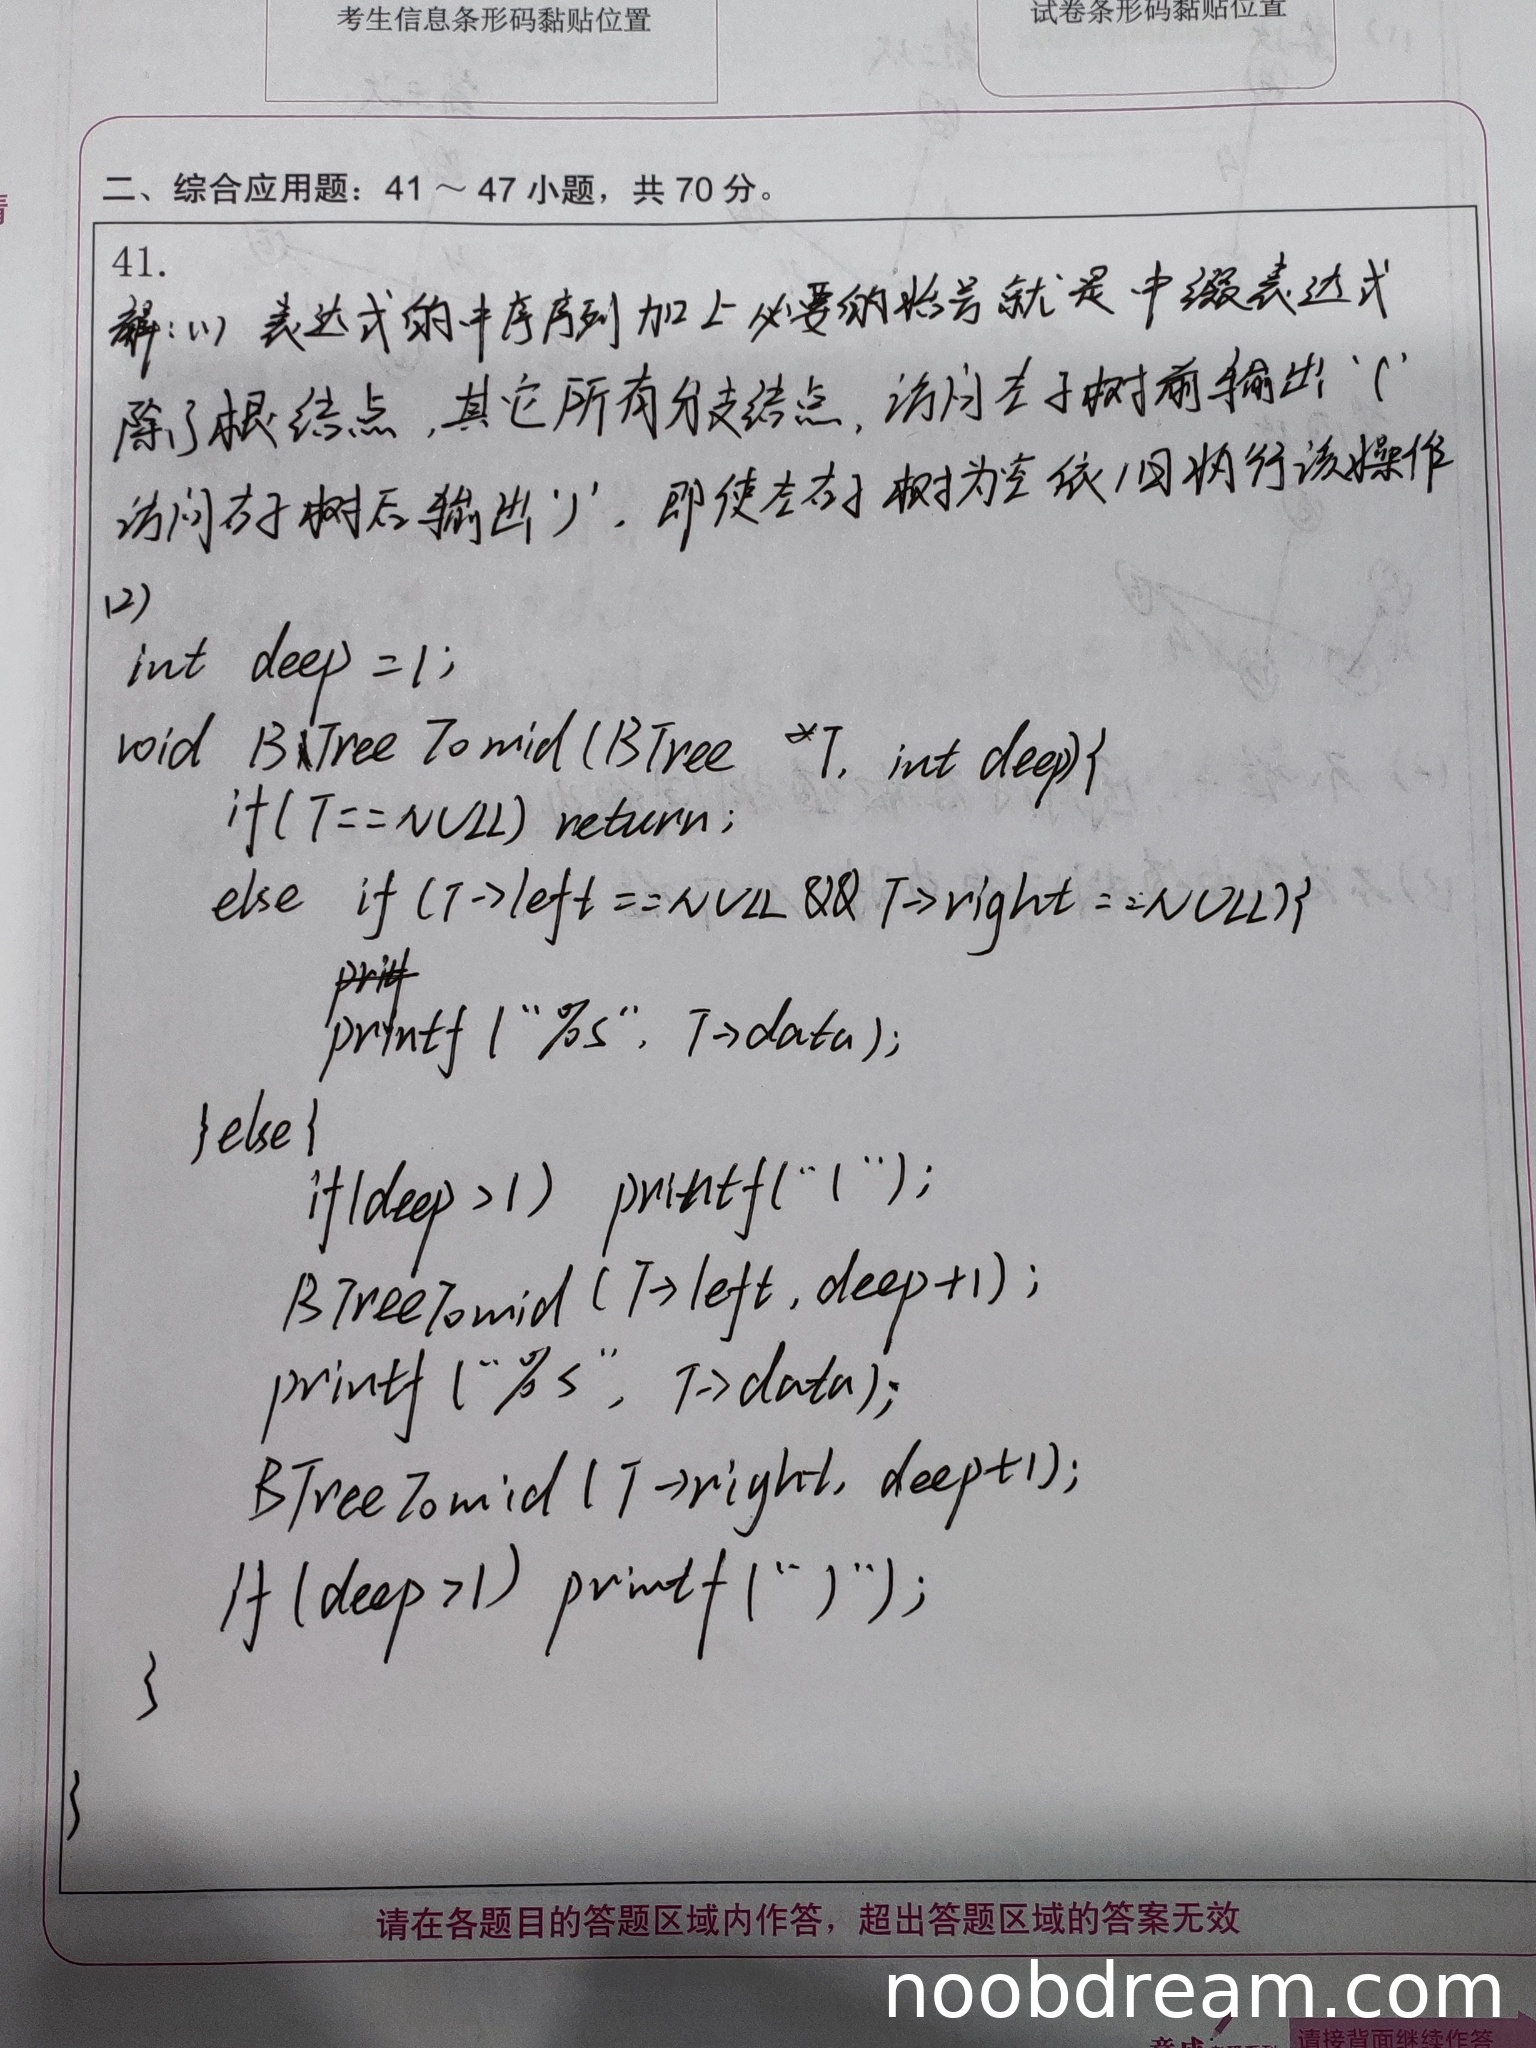 考生信息条形码黏贴位置
试卷条形码黏贴位置
二、综合应用题：41～47小题，共70分。
41.
解:(1) 表达式的中序序列加上必要的括号就是中缀表达式
除了根结点,其它所有分支结点,访问左子树前输出'('
访问右子树后输出')'. 即使左右子树为空依旧执行该操作
(2)
int deep =1;
void BTree Tomid(BTree *T, int deep){
if(T==NULL) return;
else if (T->left ==NULL && T->right ==NULL){
printf("%s", T->data);
}else{
if(deep >1) printf("(");
BTreeTomid (T->left, deep+1);
printf("%s", T->data);
BTreeTomid (T->right, deep+1);
If (deep>1) printf(")");
}
}
请在各题目的答题区域内作答，超出答题区域的答案无效
noobdream.com
请接背面继续作答